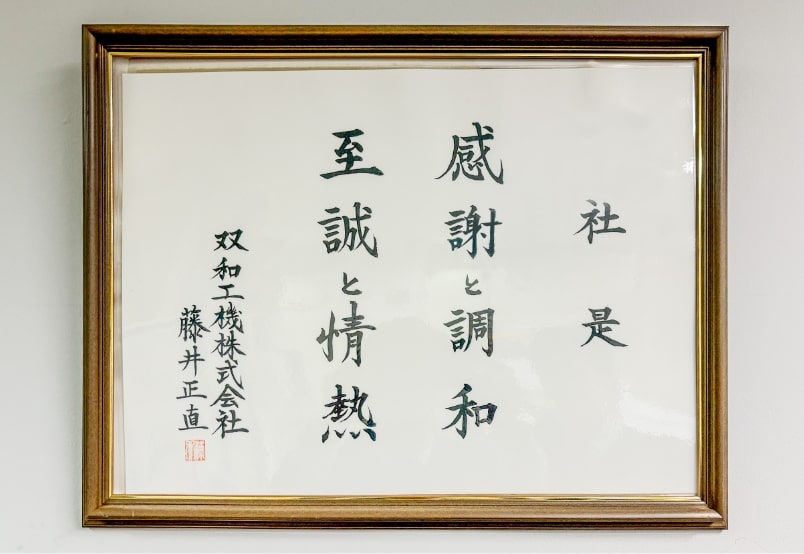 社是
感謝と調和
至誠と情熱
双和工機株式会社
藤井正直